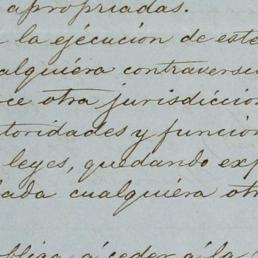 apropiadas.
la ejécución de este
alquiéra contraversi
ce otra jurisdiccion
toridades y funcion
leyes, quedando exp
ada cualquiéra otr
obliga á ceder á la